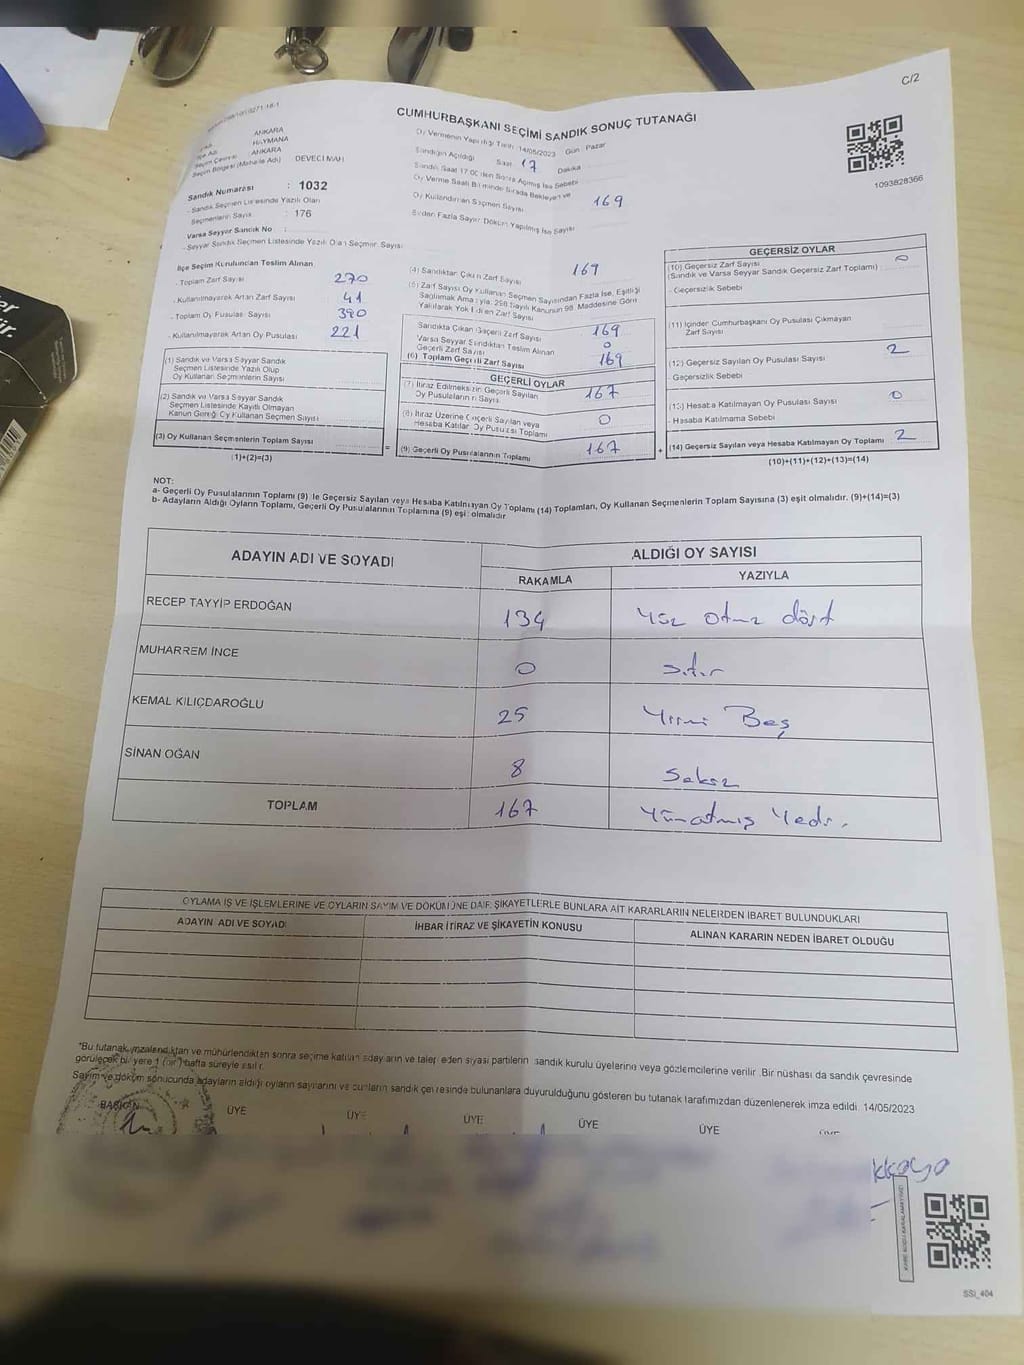 C/2
CUMHURBAŞKANI SEÇİMİ SANDIK SONUÇ TUTANAĞI
1093828366
ANKARA
HAYMANA
ANKARA
Seçim Bölgesi (Mahalle Adı) DEVECİ MAH
Sandık Numarası : 1032
- Sandık Seçmen Listesinde Yazılı Olan
Seçmenlerin Sayısı : 176
Varsa Seyyar Sandık No :
- Seyyar Sandık Seçmen Listesinde Yazılı Olan Seçmen Sayısı
Oy Vermenin Yapıldığı Tarih 14/05/2023 Gün : Pazar
Sandığın Açıldığı Saat 17 Dakika
Sandık Saat 17:00'den Sonra Açılmış İse Sebebi
Oy Verme Saati Bitiminde Sırada Bekleyen ve
Oy Kullandırılan Seçmen Sayısı 169
Birden Fazla Sayım Döküm Yapılmış İse Sayısı
İlçe Seçim Kurulundan Teslim Alınan
- Toplam Zarf Sayısı 270
- Kullanılmayarak Artan Zarf Sayısı 41
- Toplam Oy Pusulası Sayısı 390
- Kullanılmayarak Artan Oy Pusulası 221
(1) Sandık ve Varsa Seyyar Sandık
Seçmen Listesinde Yazılı Olup
Oy Kullanan Seçmenlerin Sayısı
(2) Sandık ve Varsa Seyyar Sandık
Seçmen Listesinde Kayıtlı Olmayan
Kanun Gereği Oy Kullanan Seçmen Sayısı
(3) Oy Kullanan Seçmenlerin Toplam Sayısı
(1)+(2)=(3)
(4) Sandıktan Çıkan Zarf Sayısı 169
(5) Zarf Sayısı Oy Kullanan Seçmen Sayısından Fazla İse, Eşitliği
Sağlamak Amacıyla, 298 Sayılı Kanunun 98. Maddesine Göre
Yakılarak Yok Edilen Zarf Sayısı
Sandıkta Çıkan Geçerli Zarf Sayısı 169
Varsa Seyyar Sandıktan Teslim Alınan
Geçerli Zarf Sayısı 0
(6) Toplam Geçerli Zarf Sayısı 169
GEÇERLİ OYLAR
(7) İtiraz Edilmeksizin Geçerli Sayılan
Oy Pusulalarının Sayısı 167
(8) İtiraz Üzerine Geçerli Sayılan veya
Hesaba Katılan Oy Pusulası Toplamı 0
= (9) Geçerli Oy Pusulalarının Toplamı 167
GEÇERSİZ OYLAR
(10) Geçersiz Zarf Sayısı
(Sandık ve Varsa Seyyar Sandık Geçersiz Zarf Toplamı) 0
- Geçersizlik Sebebi
(11) İçinden Cumhurbaşkanı Oy Pusulası Çıkmayan
Zarf Sayısı
(12) Geçersiz Sayılan Oy Pusulası Sayısı 2
- Geçersizlik Sebebi
(13) Hesaba Katılmayan Oy Pusulası Sayısı 0
- Hesaba Katılmama Sebebi
+ (14) Geçersiz Sayılan veya Hesaba Katılmayan Oy Toplamı 2
(10)+(11)+(12)+(13)=(14)
NOT:
a- Geçerli Oy Pusulalarının Toplamı (9) ile Geçersiz Sayılan veya Hesaba Katılmayan Oy Toplamı (14) Toplamları, Oy Kullanan Seçmenlerin Toplam Sayısına (3) eşit olmalıdır. (9)+(14)=(3)
b- Adayların Aldığı Oyların Toplamı, Geçerli Oy Pusulalarının Toplamına (9) eşit olmalıdır
ADAYIN ADI VE SOYADI ALDIĞI OY SAYISI
RAKAMLA YAZIYLA
RECEP TAYYİP ERDOĞAN 134 Yüz otuz dört
MUHARREM İNCE 0 sıfır
KEMAL KILIÇDAROĞLU 25 Yirmi Beş
SİNAN OĞAN 8 Sekiz
TOPLAM 167 Yüzaltmış Yedi.
OYLAMA İŞ VE İŞLEMLERİNE VE OYLARIN SAYIM VE DÖKÜMÜNE DAİR ŞİKAYETLERLE BUNLARA AİT KARARLARIN NELERDEN İBARET BULUNDUKLARI
ADAYIN ADI VE SOYADI İHBAR İTİRAZ VE ŞİKAYETİN KONUSU ALINAN KARARIN NEDEN İBARET OLDUĞU
*Bu tutanak imzalandıktan ve mühürlendikten sonra seçime katılan adayların ve talep eden siyasi partilerin sandık kurulu üyelerini veya gözlemcilerine verilir. Bir nüshası da sandık çevresinde
görülecek bir yere 1 (bir) hafta süreyle asılır.
Sayım ve döküm sonucunda adayların aldığı oyların sayılarını ve bunların sandık çevresinde bulunanlara duyurulduğunu gösteren bu tutanak tarafımızdan düzenlenerek imza edildi. 14/05/2023
BAŞKAN ÜYE ÜYE ÜYE ÜYE ÜYE
kkaya
SSİ_404